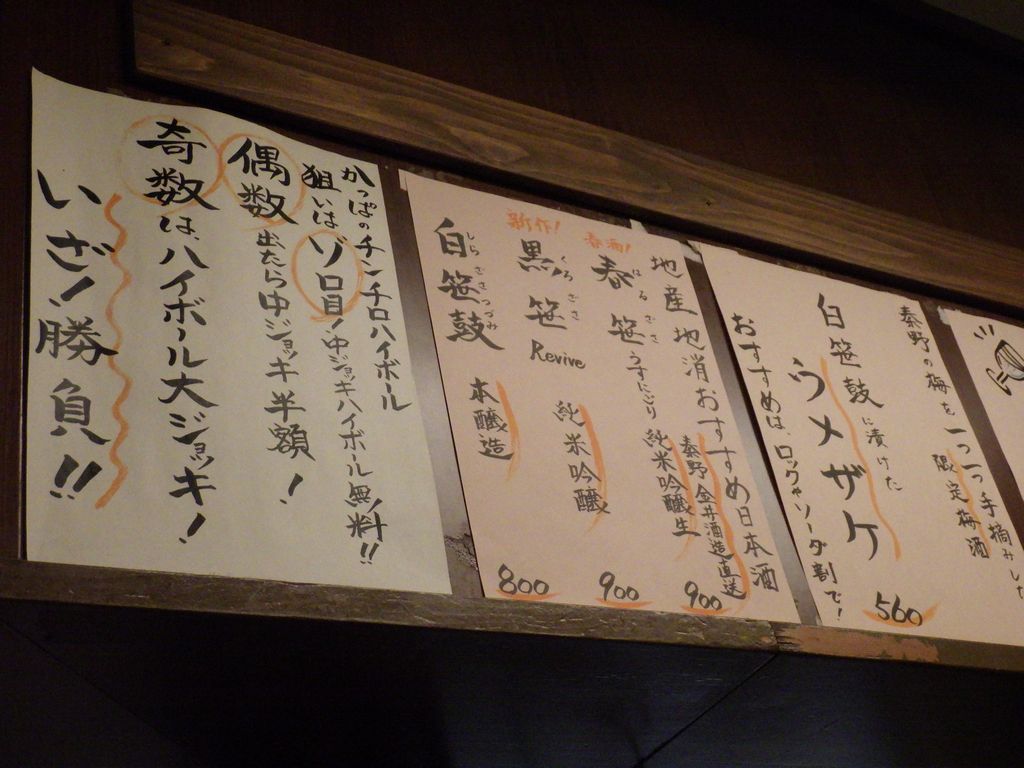 秦野の梅を一つ一つ手摘みした
限定梅酒
白笹鼓に漬けた
ウメザケ 560
おすすめは、ロックやソーダ割で!
地産地消おすすめ日本酒
秦野金井酒造直送
春酒!
春笹 うすにごり 純米吟醸生 900
はるささ
新作!
黒笹 Revive 純米吟醸 900
くろささ
白笹鼓 本醸造 800
しらささつづみ
かっぱのチンチロハイボール
狙いはゾロ目!中ジョッキハイボール無料!!
偶数出たら中ジョッキ半額!
奇数は、ハイボール大ジョッキ!
いざ!勝負!!